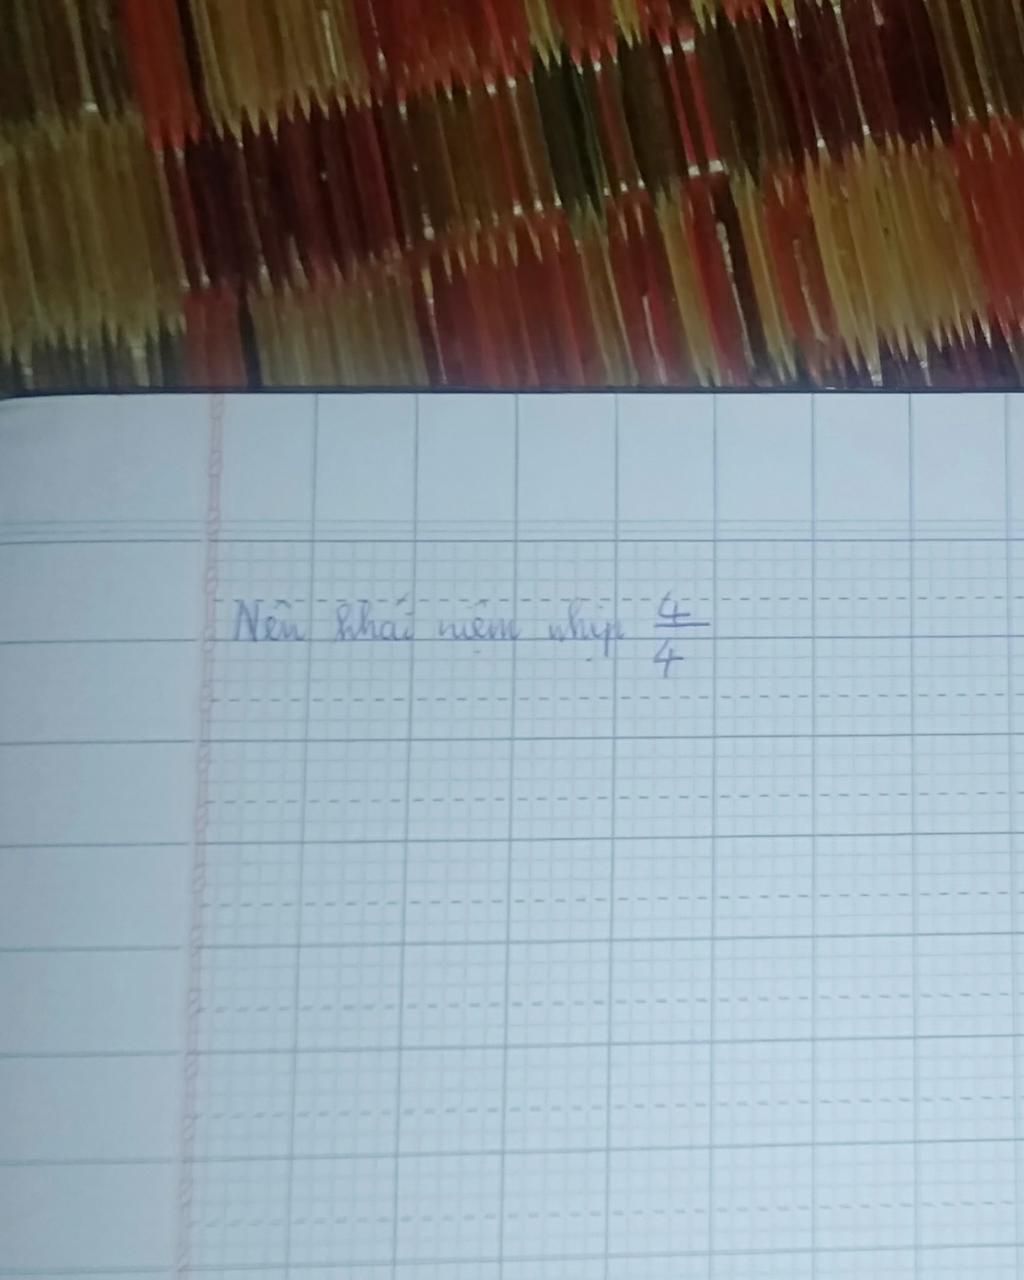 Nên khái niệm nhịp 4/4